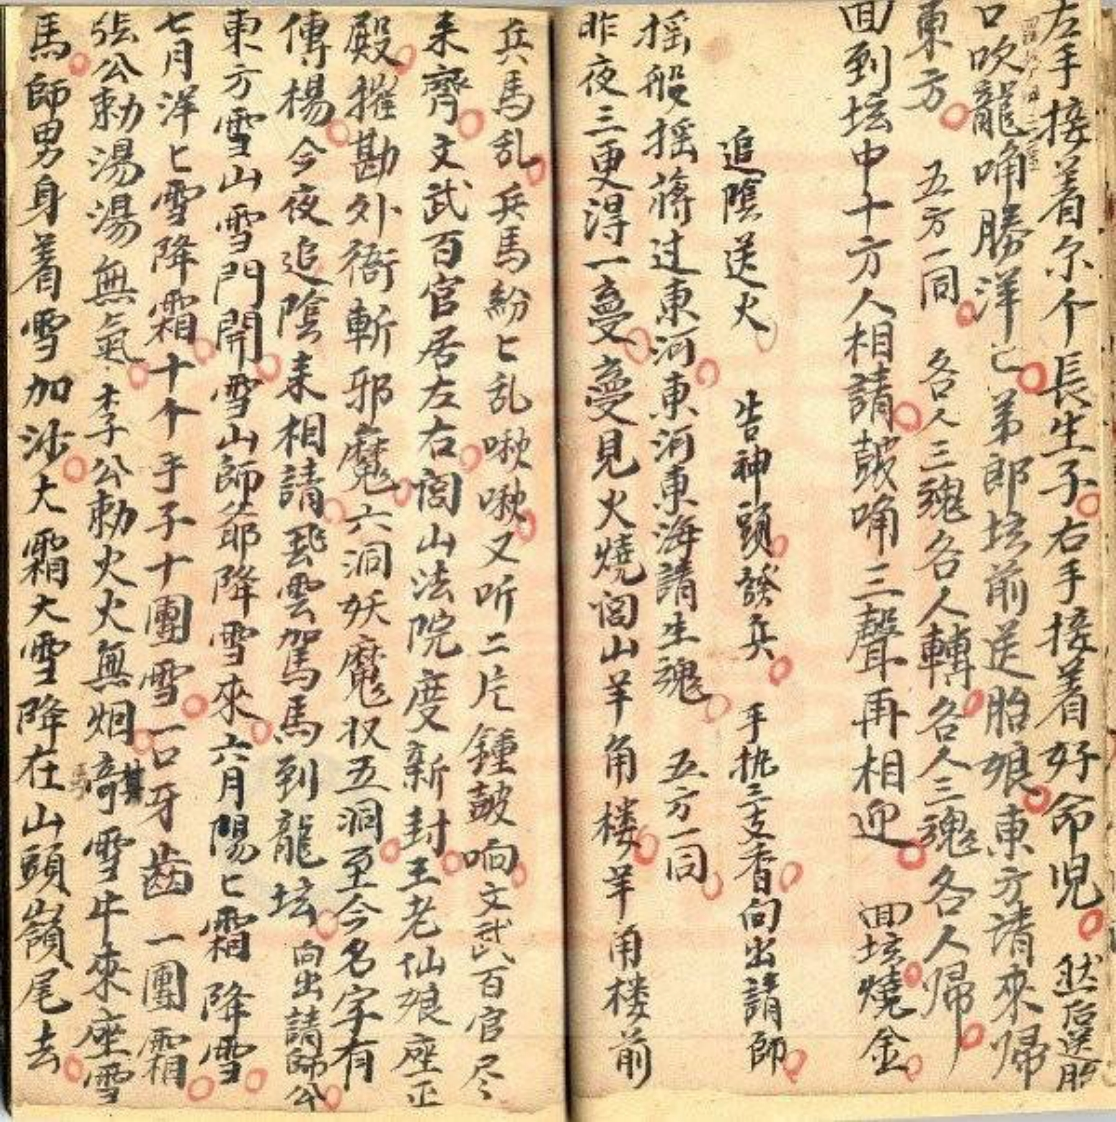 左手接着尔个長生子右手接着好命児 然后送胎
口吹龍角勝洋匕弟郎坛前送胎娘東方請來帰
東方 五方一同 各人三魂各人轉各人三魂各人帰
回到坛中十方人相請鼓角三聲再相迎 回坛燒金
追陰送火 告神頭發兵 手执三支香向出請師
摇船摇蔣过東河東河東海請生魂 五方一同
昨夜三更淂一夢夢見火燒閭山羊角楼羊角楼前
兵馬乱兵馬紛匕乱啾啾又听二片鍾鼓响文武百官尽
来齊文武百官居左右閭山法院度新封王老仙娘座正
殿摧勘外衙斬邪魔六洞妖魔収五洞至今名字有
傳楊今夜追陰来相請飛雲駕馬到龍坛 向出請師公
東方雪山雪門開雪山師爺降雪來六月陽匕霜降雪
七月洋匕雪降霜十个手子十團雪一口牙齒一團霜
張公勅湯湯無氣李公勅火火無烟 雪牛來座雪
馬師男身着雪加沙大霜大雪降在山頭嶺尾去